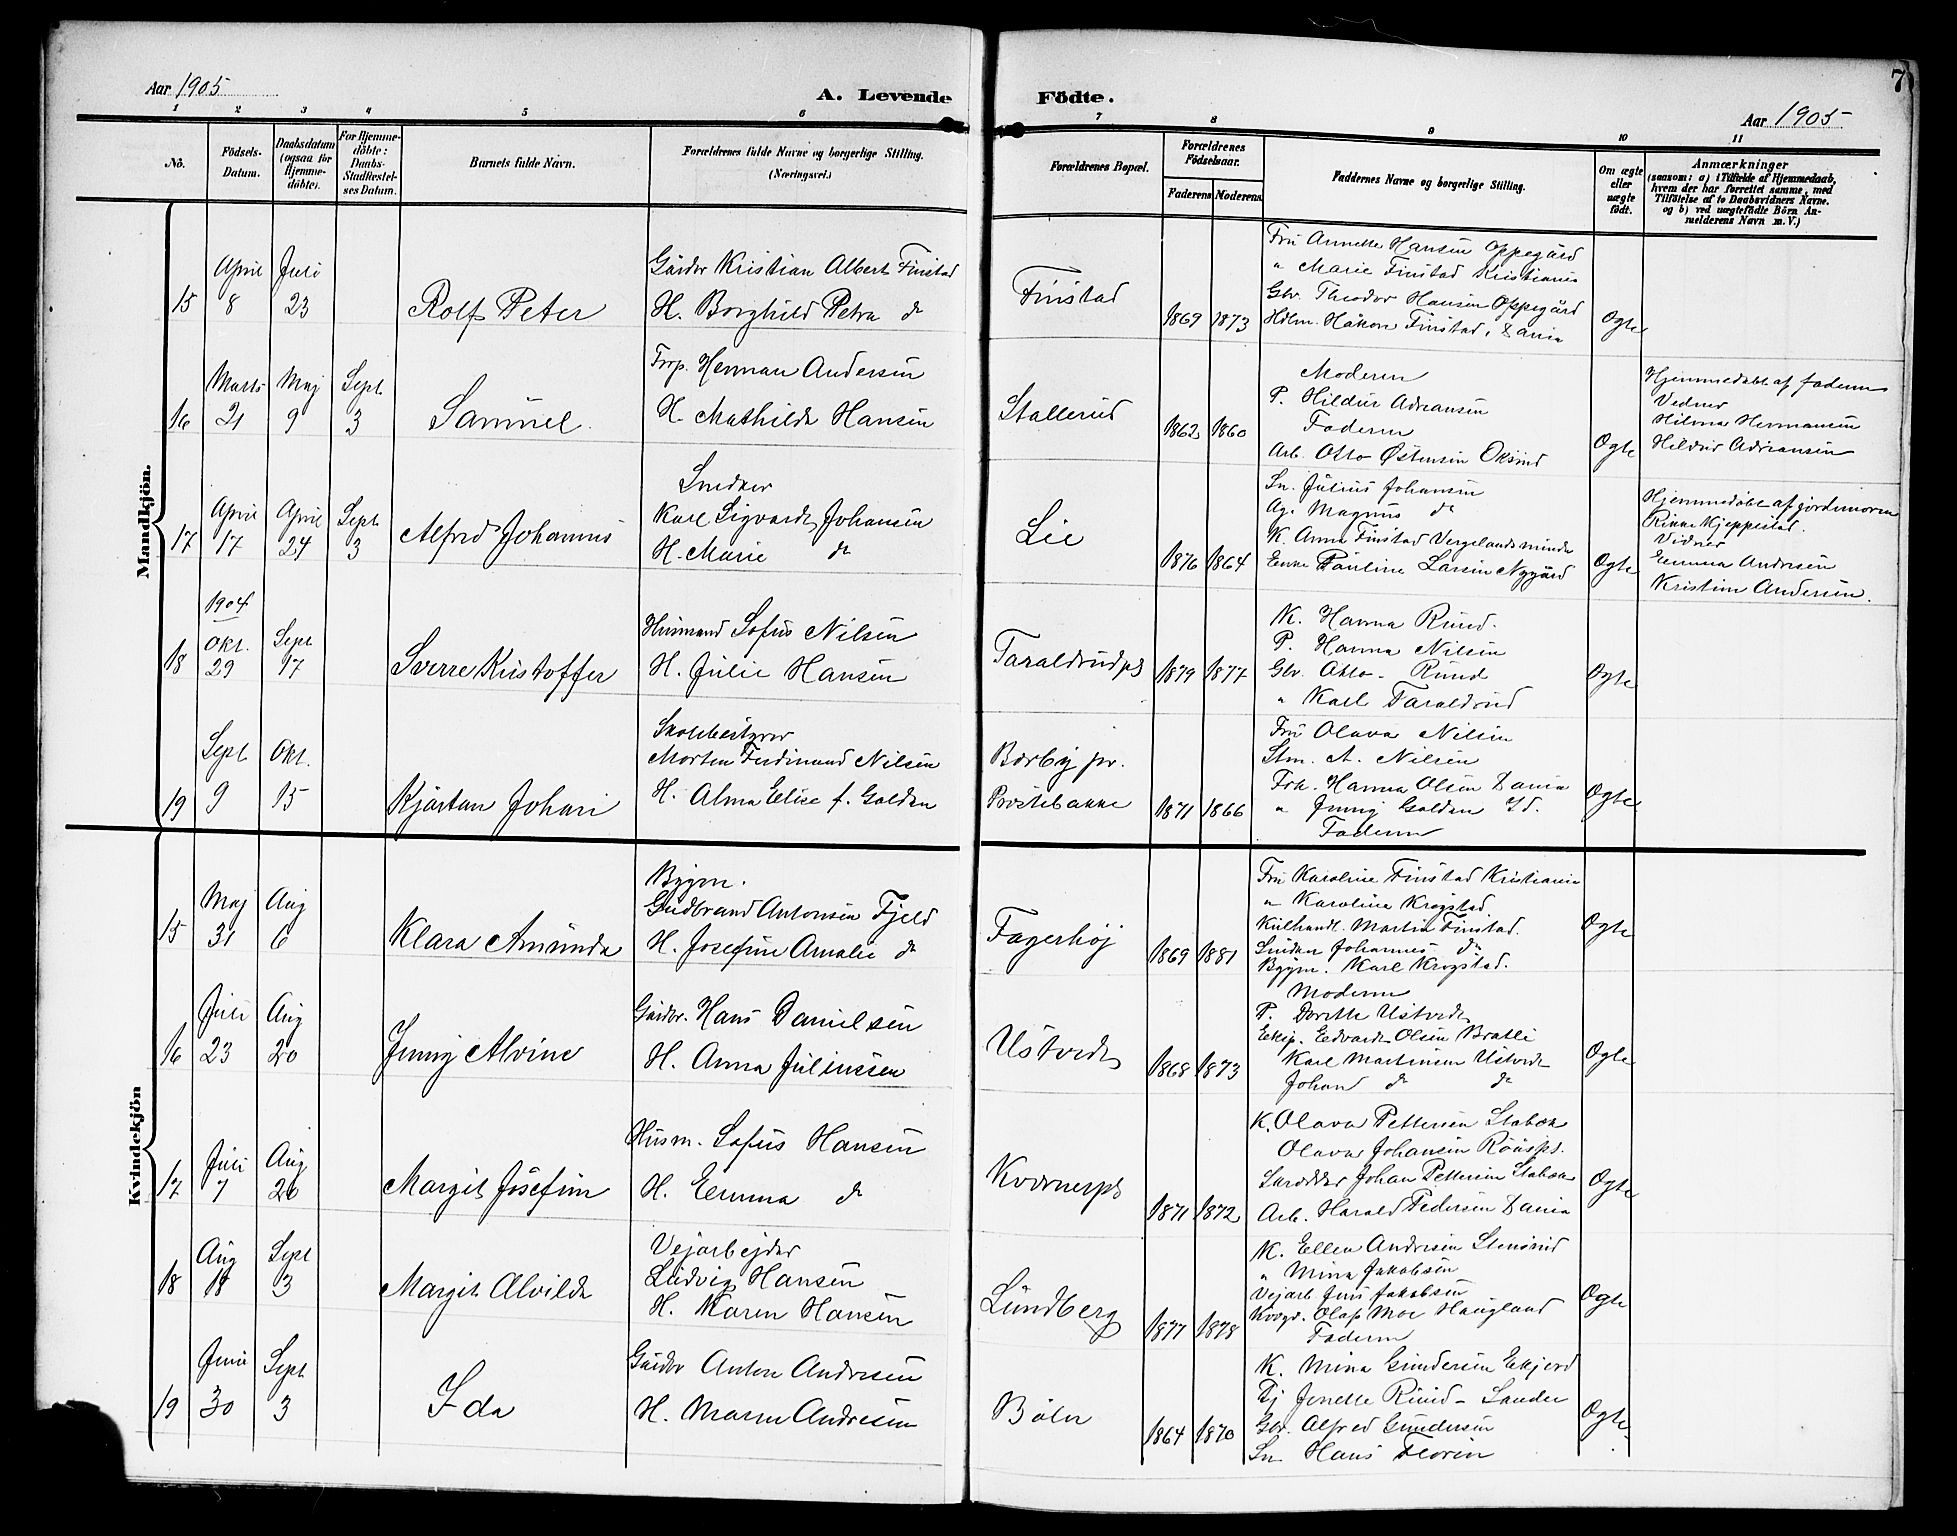 Aar 1905
A. Levende Födte.
7
Aar 1905
1 2 3 4 5 6 7 8 9 10 11
No.
Födsels-Datum.
Daabsdatum (ogsaa for Hjemme-döbte).
For Hjemme-döbte: Daabs-Stadfæstel-ses Datum.
Barnets fulde Navn.
Forældrenes fulde Navne og borgerlige Stilling.
(Næringsvei.)
Forældrenes Bopæl.
Forældrenes Födselsaar.
Faderens Moderens
Faddernes Navne og borgerlige Stilling.
Om ægte eller uægte födt.
Anmærkninger
(saasom: a) i Tilfælde af Hjemmedaab,
hvem der har forrettet samme, med
Tilföielse af to Daabsvidners Navne.
og b) ved uægtefödte Börn An-
melderens Navn m.V.)
Mandkjön.
15
April 8
Juli 23
Rolf Peter
Gårdbr Kristian Albert Finstad
H. Borghild Petra do
Finstad
1869 1873
Fru Annette Hansen Oppegård
" Marie Finstad Kristiania
Gbr. Theodor Hansen Oppegård
Hdlm. Håkon Finstad, Dania
Ogte
16
Marts 21
Maj 9
Sept 3
Samuel.
Frp. Herman Andersen
H. Mathilde Hansen
Stallerud
1862 1860
Moderen
P. Hildur Adreansen
Faderen
Arb. Otto Østensen Oksrud
Ogte
Hjemmedøbt af faderen
Vidner
Hilma Hermansen
Hildur Adreansen
17
April 17
April 24
Sept 3
Alfred Johannes
Snedker
Karl Sigvardt Johansen
H. Marie do
Lie
1876 1864
Sn. Julius Johansen
Ag. Magnus do
K. Anna Finstad Vergelandsminde
Enke Pauline Larsen Nygård
Ogte
Hjemmedøbt af jordemoren
Rikke Kjeppestad.
Vidner
Emma Andresen
Kristine Andersen.
18
1904
Okt. 29
Sept 17
Sverre Kristoffer
Husmand Sofus Nilsen
H. Julie Hansen
Taraldrudpl
1879 1877
K. Hanna Rud.
P. Hanna Nilsen
Gbr. Otto Rud
" Karl Taraldrud
Ogte
19
Sept 9
Okt. 15
Kjartan Johan
Skolebestyrer
Morten Ferdinand Nilsen
H. Alma Elise f. Golden
Bærby pr.
Præstebakke
1871 1866
Fru Olava Nilsen
Stm. A. Nilsen
Frk. Hanna Olsen Dania
" Jenny Golden Id.
Faderen
Ogte
Kvindekjön
15
Maj 31
Aug 6
Klara Amunda
Bygm.
Gudbrand Antonsen Fjeld
H. Josefine Amalie do
Fagerhøj
1869 1881
Fru Karoline Finstad Kristiania
" Karoline Krogstad
Kulhandl. Martin Finstad.
Snidker Johannes do
Bygm. Karl Krogstad.
Ogte
16
Juli 23
Aug 20
Jenny Alvine
Gårdbr. Hans Danielsen
H. Anna Julinssen
Ustvedt
1868 1873
Moderen
P. Dorette Ustvedt
Ekip. Edvardt Olsen Bratli
Karl Martinsen Ustvedt
Johan do do
Ogte
17
Juli 7
Aug 20
Margit Josefine
Husm. Sofus Hansen
H. Emma do
Kværnerpl
1871 1872
K. Olava Pettersen Stabæk
Olava Johansen
Johan Pettersen Stabæk
Arb. Harald Pedersen Dania
Ogte
18
Aug 18
Sept 3
Margit Alvilde
Vejarbejder
Ludvig Hansen
H. Karen Hansen
Lundberg
1877 1878
K. Ellen Andresen Stensrud
" Mina Jakobsen
Vejarb. Jens Jakobsen
Olaf Moe Haugland
Faderen
Ogte
19
Juni 30
Sept 3
Ida
Gårdbr Anton Andresen
H. Maren Andresen
Bøler
1864 1870
K. Mina Gundersen Ekjord
Pj Jenette Rud - Sander
Gbr. Alfred Gundersen
Sn Hans Floren
Ogte